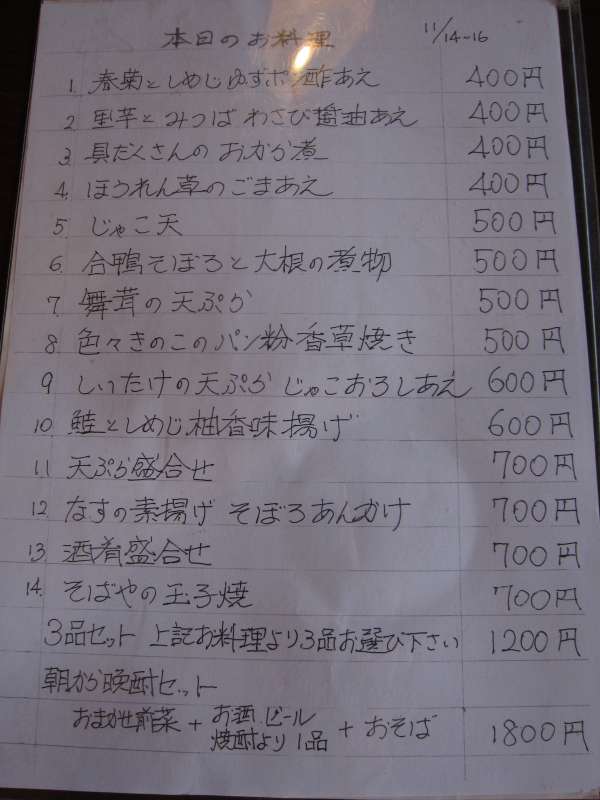 本日のお料理 11/14-16
1. 春菊としめじゆずポン酢あえ 400円
2. 里芋とみつばわさび醤油あえ 400円
3. 具だくさんのおから煮 400円
4. ほうれん草のごまあえ 400円
5. じゃこ天 500円
6. 合鴨そぼろと大根の煮物 500円
7. 舞茸の天ぷら 500円
8. 色々きのこのパン粉香草焼き 500円
9 しいたけの天ぷら じゃこおろしあえ 600円
10. 鮭としめじ柚香味揚げ 600円
11. 天ぷら盛合せ 700円
12 なすの素揚げ そぼろあんかけ 700円
13. 酒肴盛合せ 700円
14. そばやの玉子焼 700円
3品セット 上記お料理より3品お選び下さい 1200円
朝から晩酌セット
おまかせ前菜 + お酒.ビール 焼酎より1品 + おそば 1800円